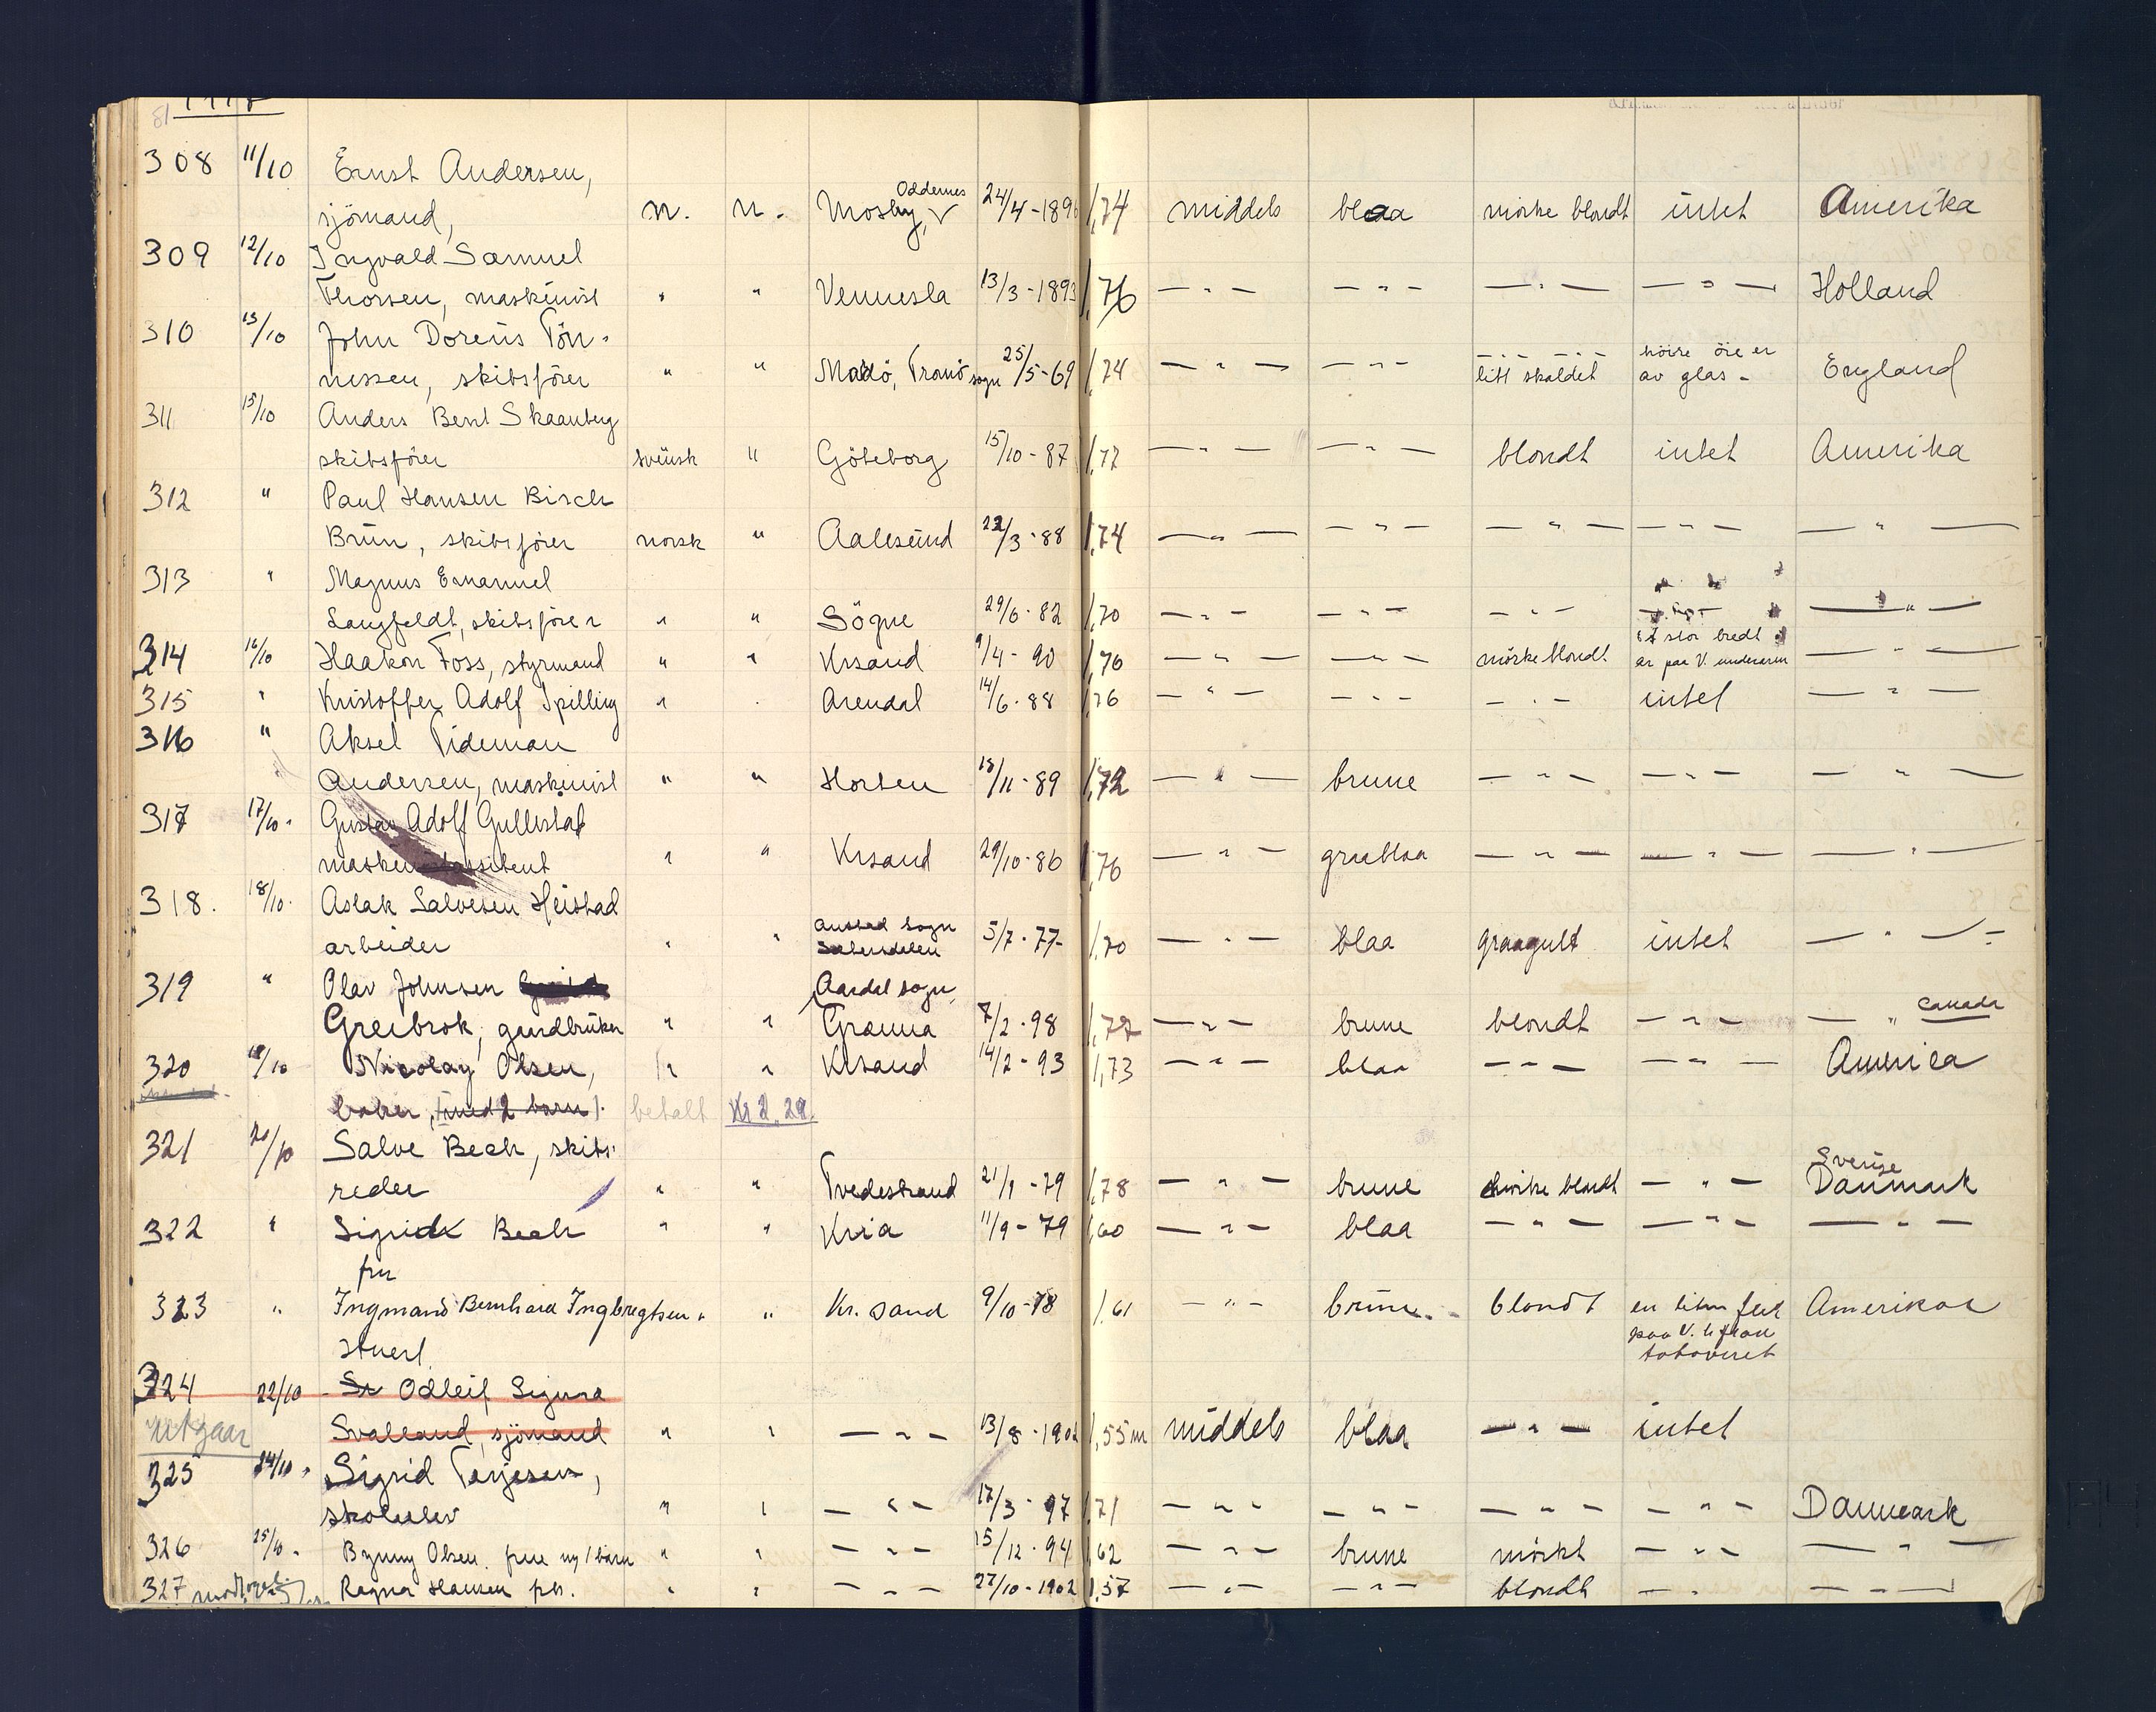 308 11/10 Ernst Andersen,
sjömand, n. n. Mosby, Oddernes 24/4-189 1,74 middels blaa mörke blondt intet Amerika
309 12/10 Ingvald Samuel
Thorsen, maskinist " " Vennesla 13/3-1893 1,76 — " — — " — — " — — " — Holland
310 13/10 John Dorenis Tön-
nessen, skibsförer " " sogn 25/5-69 1,74 — " — — " — litt skaldet höire öie er av glas - England
311 15/10 Anders Bernt Skaanberg
skibsförer svensk " Göteborg 15/10-87 1,77 — " — — " — blondt intet Amerika
312 " Paul Hansen Birch
Brun, skibsförer norsk " Aalesund 22/3-88 1,74 — " — — " — — " — — " — — " —
313 " Magnus Emanuel
Langfeldt, skibsförer " " Sögne 29/6-82 1,70 — " — — " — — " — — " — — " —
314 16/10 Haakon Foss, styrmand " " Krsand 9/4-90 1,76 — " — — " — mörke blondt et stor bredt ar paa V. underarm — " —
315 " Kristoffer Adolf Spilling " " Arendal 14/6-88 1,76 — " — — " — — " — intet — " —
316 " Aksel Tideman
Andersen, maskinist " " Horten 18/11-89 1,72 — " — brune — " — — " — — " —
317 17/10- Gustav Adolf Gullestad
" " Krsand 29/10-86 1,76 — " — graablaa — " — — " — — " —
318. 18/10- Aslak Salvesen Heistad
arbeider " " Austad sogn Sætersdalen 5/7-77- 1,70 — " — blaa graagult intet — " —
319 " Olav Johnsen
Greibrok, gaardbruker " " Aardal sogn, 7/2-98 1,77 — " — brune blondt — " — — " Canada
320 18/10 Nicolay Olsen, " " Krsand 14/2-93 1,73 — " — blaa — " — — " — America
baker, (med 2 barn). betalt Kr 2.20.
321 20/10 Salve Bech, skibs-
reder " " Tvedestrand 21/9-79 1,78 — " — brune mörke blondt — " — Sverige Danmark
322 " Sigrid Bech " " Kria 11/9-79 1,60 — " — blaa — " — — " — — " —
fru
323 " Ingmand Bernhard Ingbregtsen " " Kr. sand 9/10-18 1.61 — " — brune. - blondt en liten paa V. tatoveret
Stuert.
324 22/10 - Odleif Sigurd
utgaar Svalland, sjömand " " — " — 13/8-1902 1,55 m middels blaa — " — intet
325 24/10 " Sigrid Terjesen,
skoleelev " " — " — 17/3-97 1,71 — " — — " — — " — — " — Danmark
326 25/10- Olsen. frue m/1 barn " " — " — 15/12-94 1,62 — " — brune mörkt — " — — " —
327 Ragna Hansen frk. " " — " — 27/10-1902 1,57 — " — — " — blondt — " — — " —